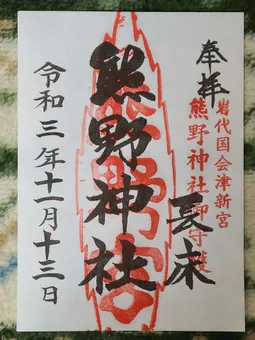 奉拝
岩代国会津新宮
熊野神社御守護
長床
熊野神社
令和三年十一月十三日